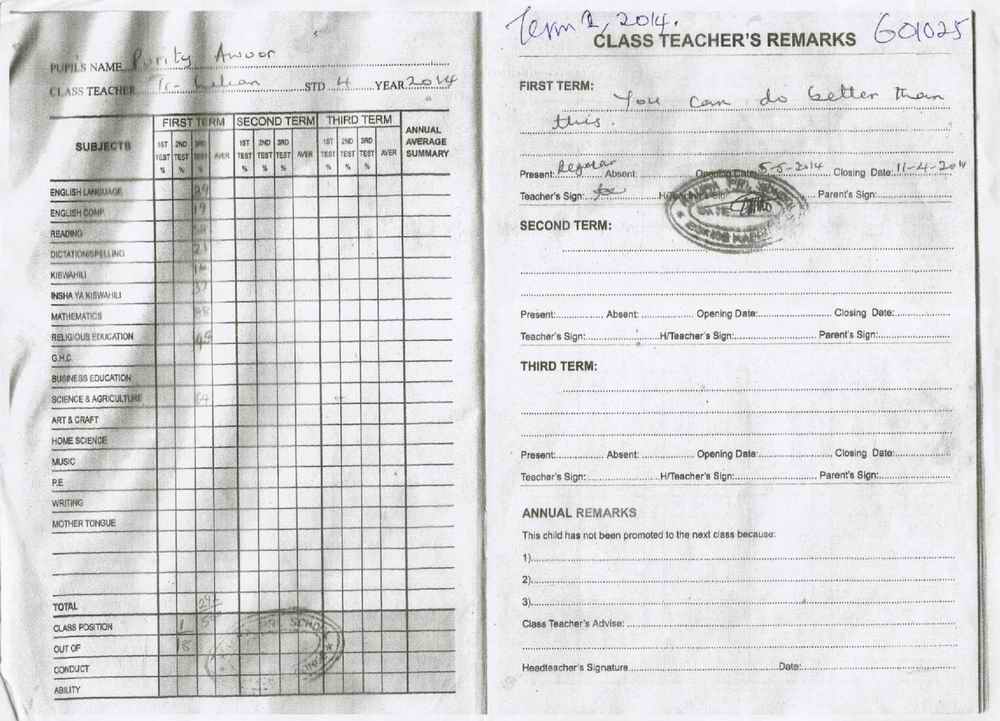 PUPILS NAME Purity Awuor
CLASS TEACHER Tr. Lilian STD 4 YEAR 2014
SUBJECTS FIRST TERM SECOND TERM THIRD TERM ANNUAL AVERAGE SUMMARY
1ST TEST % 2ND TEST % 3RD TEST % AVER 1ST TEST % 2ND TEST % 3RD TEST % AVER 1ST TEST % 2ND TEST % 3RD TEST % AVER
ENGLISH LANGUAGE
ENGLISH COMP. 19
READING
DICTATION/SPELLING
KISWAHILI
INSHA YA KISWAHILI
MATHEMATICS
RELIGIOUS EDUCATION
G.H.C.
BUSINESS EDUCATION
SCIENCE & AGRICULTURE 64
ART & CRAFT
HOME SCIENCE
MUSIC
P.E
WRITING
MOTHER TONGUE
TOTAL
CLASS POSITION 1
OUT OF 18
CONDUCT
ABILITY
Term 1, 2014. G01025
CLASS TEACHER'S REMARKS
FIRST TERM: You can do better than
this.
Present: Regular Absent: Opening Date: 5-5-2014 Closing Date: 11-4-2014
Teacher's Sign: H/Teacher's Sign: Parent's Sign:
SECOND TERM:
Present: Absent: Opening Date: Closing Date:
Teacher's Sign: H/Teacher's Sign: Parent's Sign:
THIRD TERM:
Present: Absent: Opening Date: Closing Date:
Teacher's Sign: H/Teacher's Sign: Parent's Sign:
ANNUAL REMARKS
This child has not been promoted to the next class because:
1)
2)
3)
Class Teacher's Advise:
Headteacher's Signature Date: